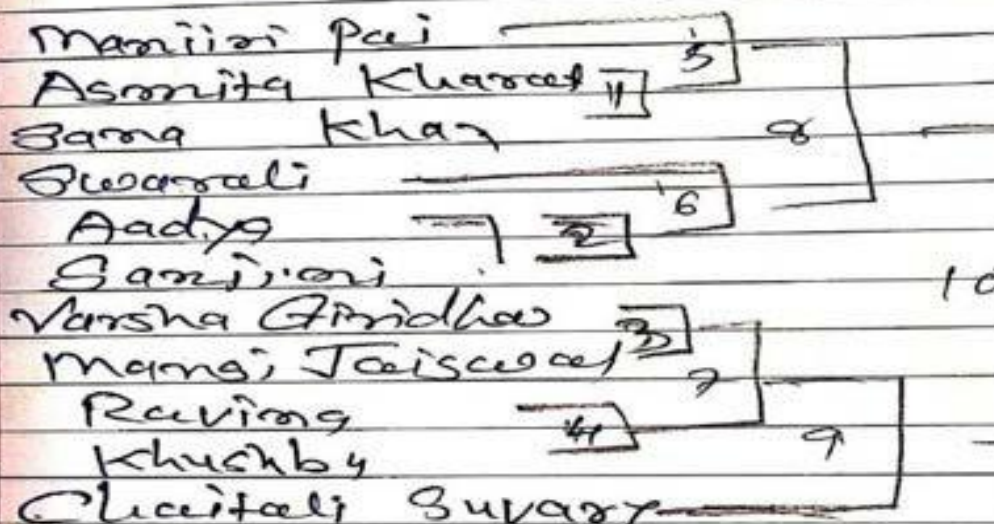 Manjiri Pai 5
Asmita Kharat 1
Sana Khan 8
Swarali 6
Aadya 2
Sanjivni 10
Varsha Giridhar 3
Mansi Jaiswal 7
Ravina 4
Khushbu 9
Chaitali Suvarn